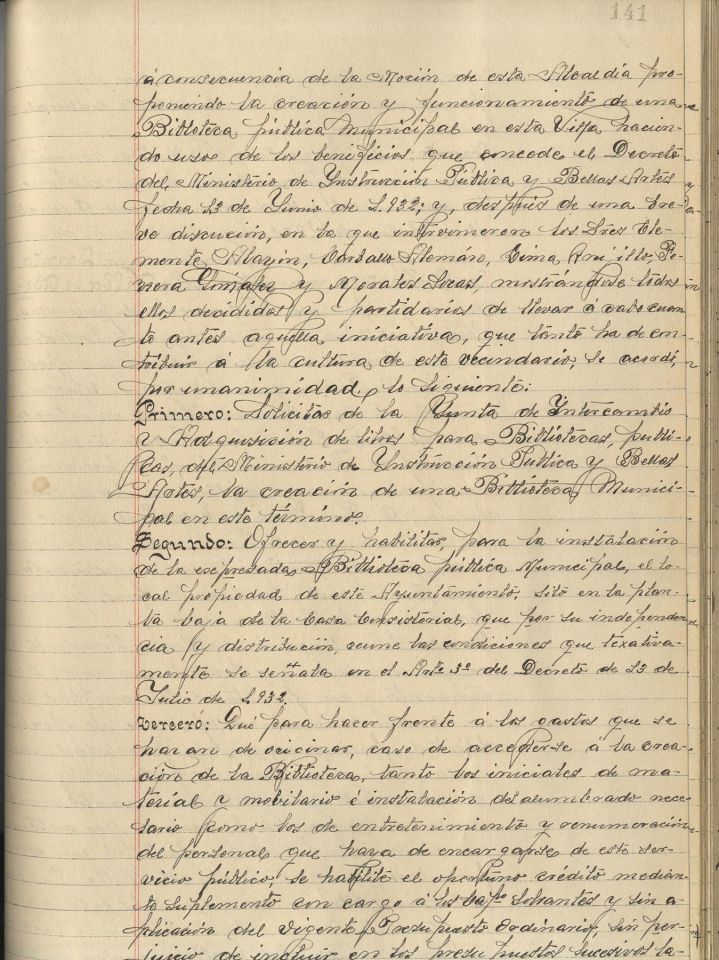 141
á consecuencia de la Moción de esta Alcaldía pro-
poniendo la creación y funcionamiento de una
Biblioteca pública Municipal en esta Villa hacien-
do usos de los beneficios que concede el Decreto
del Ministerio de Ynstrucción Pública y Bellas Artes
fecha 13 de Junio de 1.932; y, después de una bre-
ve discución, en la que intervinieron los Sres Cle-
mente Alayón, Carballo Alemán, Lima Trujillo, He-
rrera González y Morales mostrándose todos
ellos decididos y partidarios de llevar á cabo cuan-
to antes aquella iniciativa, que tanto ha de con-
tribuir á la cultura de este vecindario, se acordó,
por unanimidad, lo siguiente:
Primero: Solicitar de la Yunta de Yntercambio
y Adquisición de libros para Bibliotecas, públi-
cas, del Ministerio de Ynstrucción Pública y Bellas
Artes, la creación de una Biblioteca Munici-
pal en este término.
Segundo: Ofrecer y habilitar, para la instalación
de la expresada Biblioteca pública Municipal, el lo-
cal propiedad de este Ayuntamiento, sito en la plan-
ta baja de la Casa Consistorial, que por su independen-
cia y distribución, reune las condiciones que taxativa-
mente se señala en el Artº. 3º del Decreto de 13 de
Julio de 1.932.
Tercero: Qué para hacer frente á los gastos que se
haran de caso de acceder-se á la crea-
ción de la Biblioteca, tanto los iniciales de ma-
terial y mobilario é instalación del alumbrado nece-
sario como los de entretenimiento y renumeración
del personal que haya de encargarse de este ser-
vicio público, se habilite el oportuno crédito median-
te suplemento con cargo á los sobrantes y sin a-
plicación del vigente Presupuesto Ordinario, sin per-
juicio de incluir en los presupuestos sucesivos la-